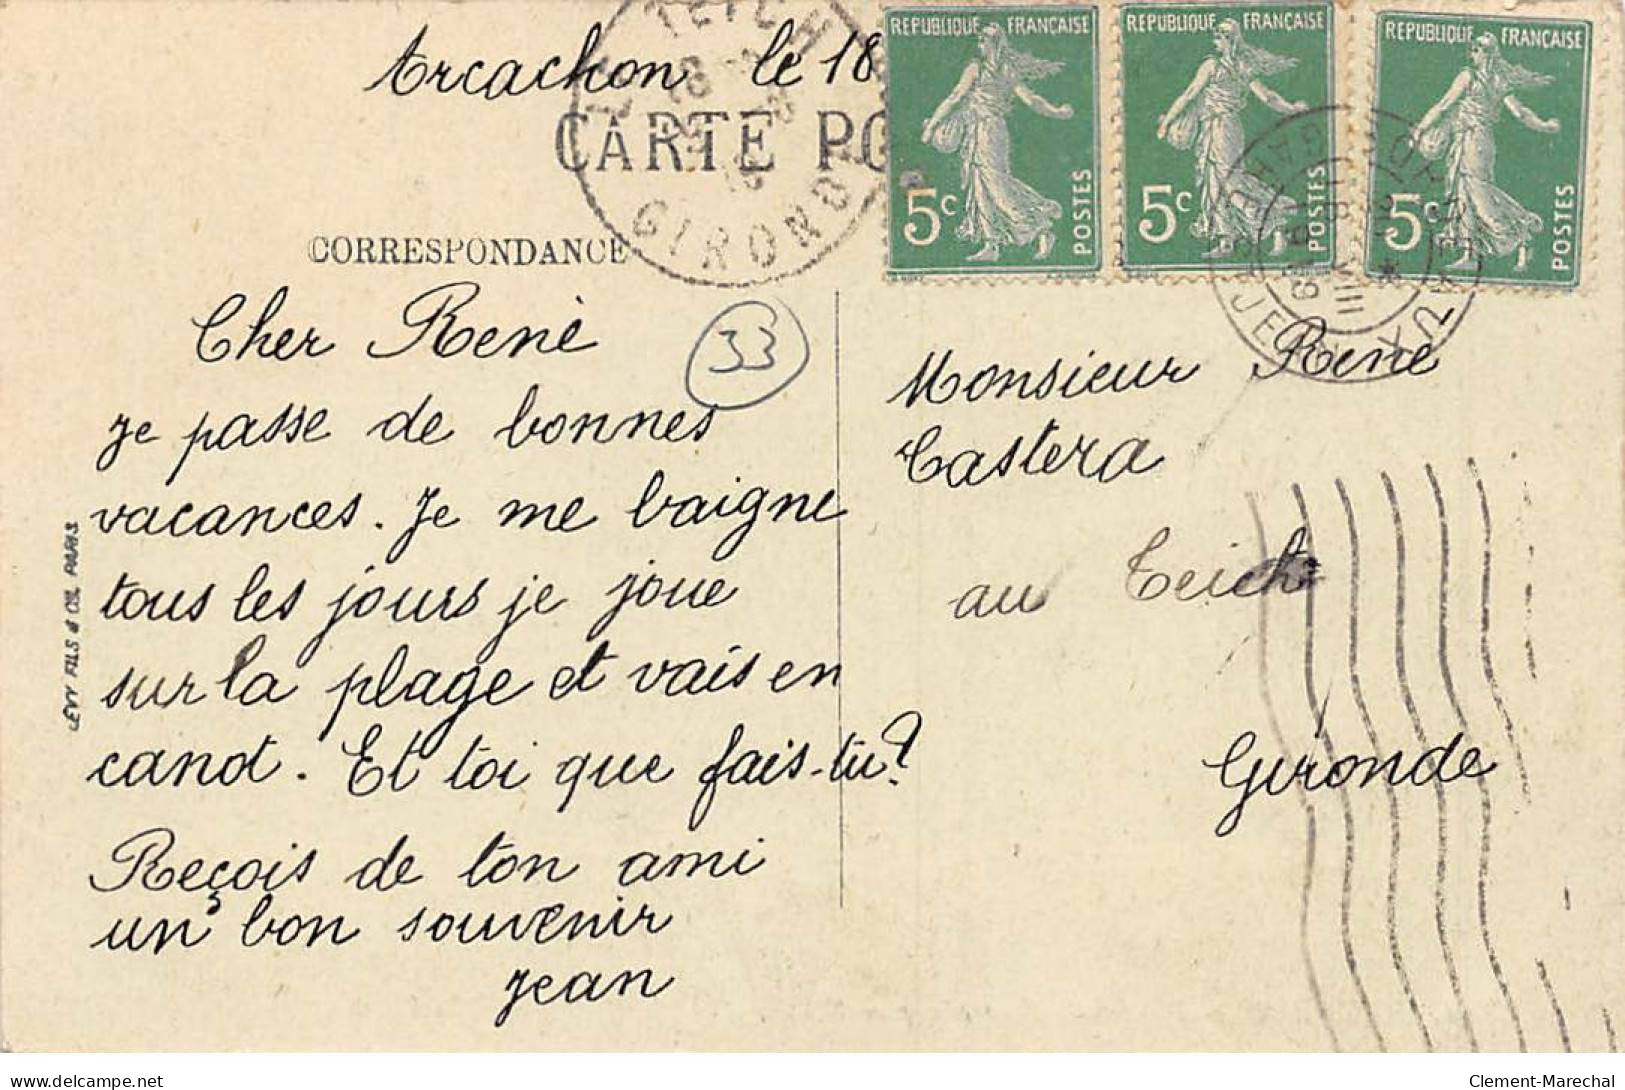 Arcachon le 18
CARTE PO
CORRESPONDANCE
Cher René
33
je passe de bonnes
vacances. Je me baigne
tous les jours je joue
sur la plage et vais en
canot. Et toi que fais-tu?
Reçois de ton ami
un bon souvenir
Jean
LEVY FILS & CIE. PARIS
REPUBLIQUE FRANÇAISE
5c
POSTES
REPUBLIQUE FRANÇAISE
5c
POSTES
REPUBLIQUE FRANÇAISE
5c
POSTES
TEICH
GIRONDE
Monsieur René
Castera
au Teich
Gironde
delcampe.net
Clement-Marechal